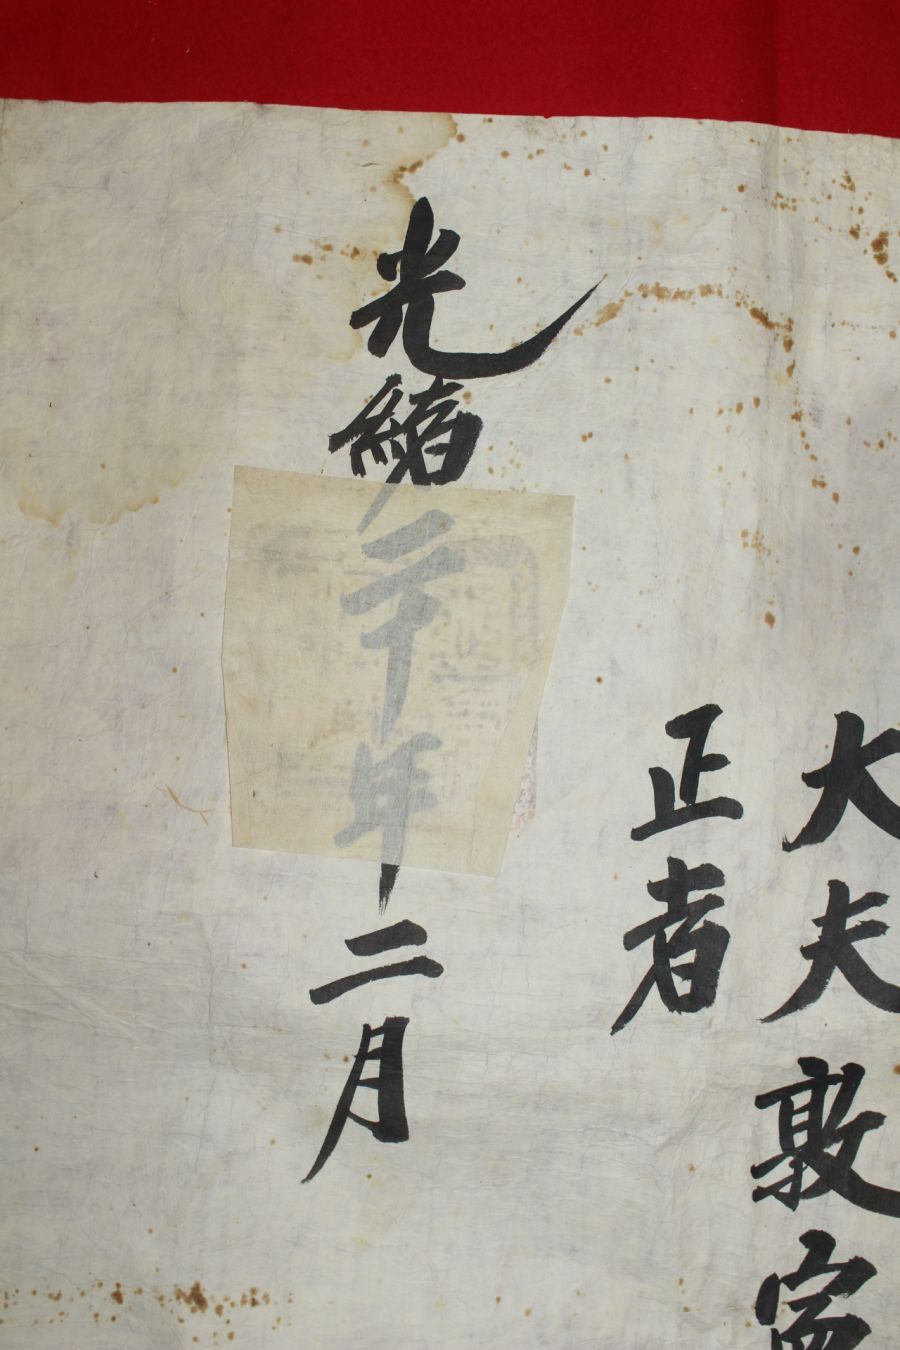 大夫敦寍
正者
光緒二十年
二月